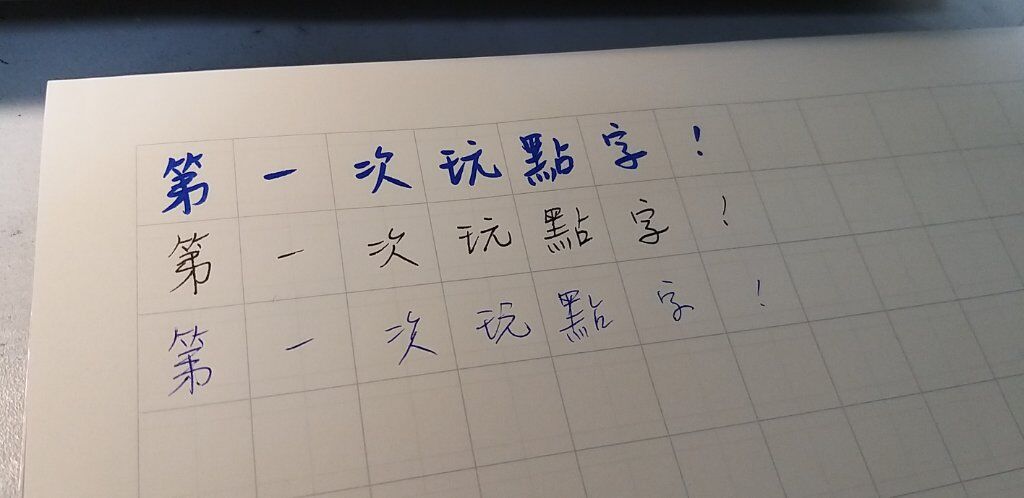 第一次玩點字！
第一次玩點字！
第一次玩點字！